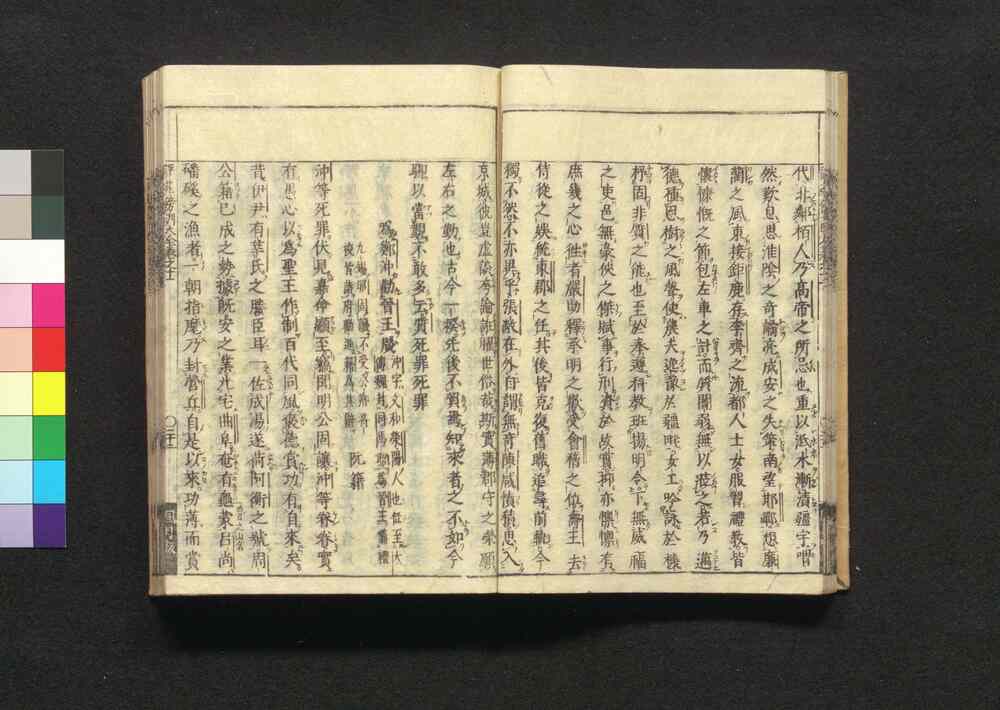 代北鄰栢人乃高帝之所忌也重以泜水漸漬疆宇喟
然歎息思淮陰之奇譎亮成安之失策南望邯鄲想廉
藺之風東接鉅鹿存李齊之流都人士女服習禮教皆
懷慷慨之節包左車之計而質闇弱無以莅之若乃邁
德種恩樹之風聲使農夫逸豫於疆畔女工吟詠於機
杼固非質之能也至於奉遵科教班揚明令下無威福
之吏邑無豪俠之傑賦事行刑資於故實抑亦懍懍有
庶幾之心往者嚴助釋承明之歡受會稽之位壽王去
侍從之娛統東郡之任其後皆克復舊職追尋前軌今
獨不然不亦異乎張敞在外自謂無奇陳咸憤積思入
京城彼豈虛談夸論誑耀世俗哉斯實薄郡守之榮顯
左右之勤也古今一揆先後不貿焉知來者之不如今
聊以當覲不敢多云質死罪死罪
為鄭沖勸晉王牋
沖字文和榮陽人也位至大
傅魏封司馬昭為晉王備禮
九錫昭固讓不受公卿將
校皆詣府勸進籍為其辭
阮籍
沖等死罪伏見嘉命顯至竊聞明公固讓沖等眷眷實
有愚心以為聖王作制百代同風褒德賞功有自來矣
昔伊尹有莘氏之媵臣耳一佐成湯遂荷阿衡之號周
公藉已成之勢據旣安之業光宅曲阜奄有龜蒙呂尚
磻磎之漁者一朝指麾乃封營丘自是以來功薄而賞